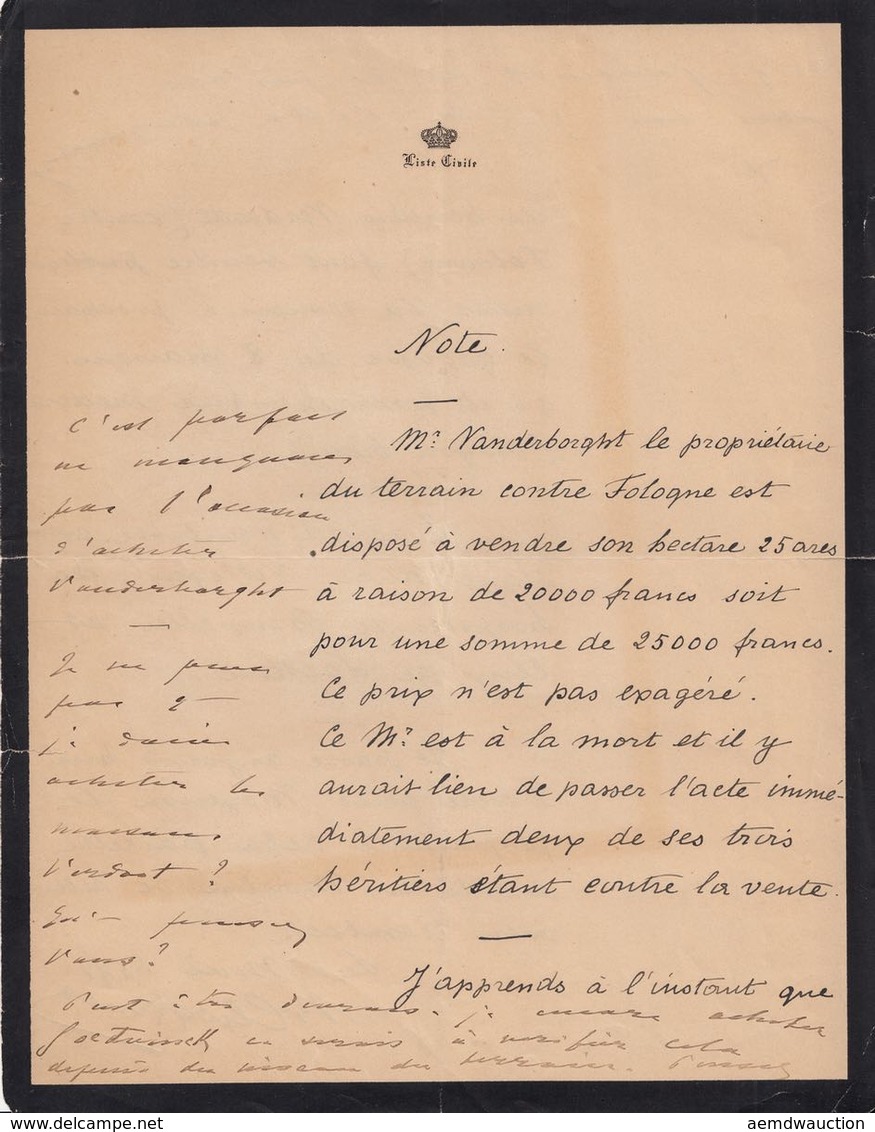 Liste Civile
Note.
Mr. Vanderborght le propriétaire
du terrain contre Fologne est
disposé à vendre son hectare 25 ares
à raison de 20000 francs soit
pour une somme de 25000 francs.
Ce prix n'est pas exagéré.
Ce Mr. est à la mort et il y
aurait lieu de passer l'acte immé-
diatement deux de ses trois
héritiers étant contre la vente.
J'apprends à l'instant que
c'est parfait
ne manquons
pas l'occasion
d'acheter
Vanderborght
Je ne pense
pas q
je doive
acheter les
maisons
Verdast ?
Qu'en pensez
Vous ?
Peut être devrais-je encore acheter
ce serait à vérifier cela
du terrain. Pensez
aemdwauction